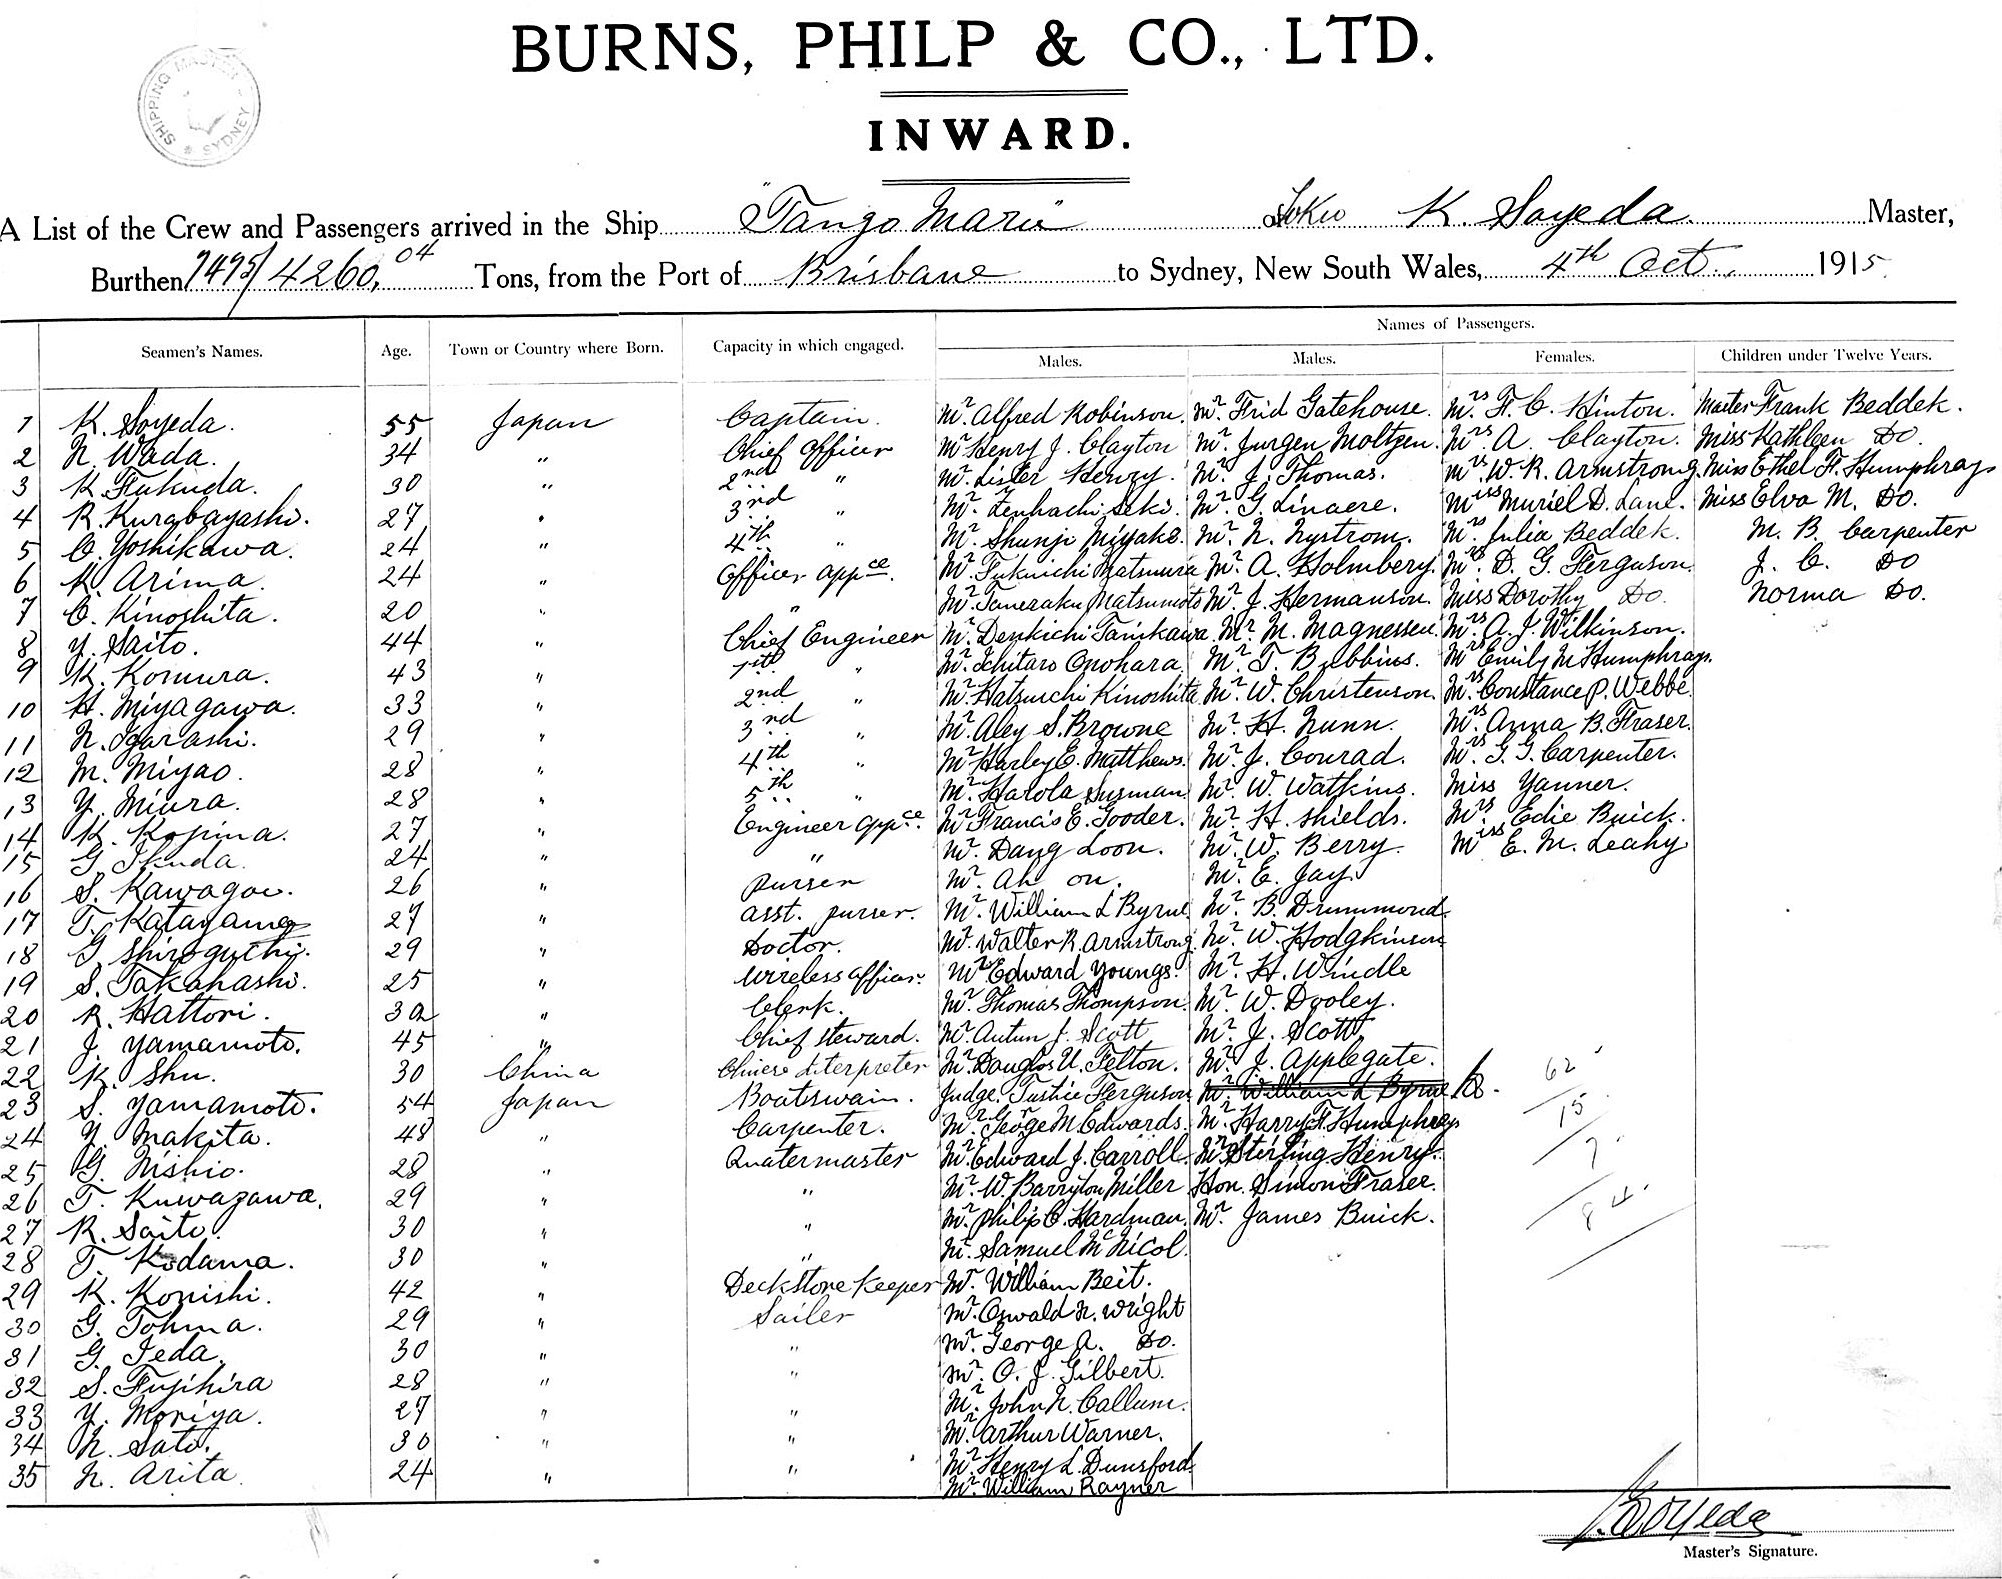 BURNS, PHILP & CO., LTD.
SHIPPING MASTER SYDNEY
INWARD.
A List of the Crew and Passengers arrived in the Ship "Tango Maru" K. Soyeda Master,
Burthen 7475/4260.04 Tons, from the Port of Brisbane to Sydney, New South Wales, 4th Oct. 1915
Names of Passengers.
Seamen's Names. Age. Town or Country where Born. Capacity in which engaged. Males. Males. Females. Children under Twelve Years.
1 K. Soyeda. 55 Japan Captain. Mr. Alfred Robinson. Mr. Frid Gatehouse. Mrs. F. C. Hinton. Master Frank Beddek.
2 N. Wada. 34 " Chief Officer Mr Henry J. Clayton Mr. Jurgen Moltzen. Mrs A. Clayton. Miss Kathleen Do.
3 K. Fukuda. 30 " 2nd " Mr. Lister Henry. Mr. J. Thomas. Mrs. W. R. Armstrong. Miss Ethel F. Humphrays
4 R. Kurabayashi. 27 " 3rd " Mr. Zenhachi Seki. Mr. G. Linacre. Miss Muriel D. Lane. Miss Elva M. Do.
5 C. Yoshikawa. 24 " 4th " Mr. Shunji Miyake. Mr. N. Nystrom. Mrs. Julia Beddek. M. B. Carpenter
6 K. Arima. 24 " Officer appce. Mr. Fukuichi Matsumura Mr. A. Holmberg. Mrs. D. G. Ferguson. J. C. Do
7 C. Kinoshita. 20 " " Mr. Taneraku Matsumoto Mr. J. Hermanson. Miss Dorothy Do. Norma Do.
8 Y. Saito. 44 " Chief Engineer Mr. Denkichi Tanikawa. Mr. M. Magnessen. Mrs. A. J. Wilkinson.
9 K. Komura. 43 " 1st " Mr. Ichitaro Onohara. Mr. T. Bubbins. Mrs Emily M Humphrays.
10 H. Miyagawa. 33 " 2nd " Mr. Hatsuichi Kinoshita Mr. W. Christenson. Mrs. Constance P. Webbe.
11 N. Igarashi. 29 " 3rd " Mr. Aley S. Browne Mr. H. Nunn. Mrs. Anna B. Fraser.
12 M. Miyao. 28 " 4th " Mr Harley E. Matthews. Mr. J. Conrad. Mrs. G. G. Carpenter.
13 Y. Miura. 28 " 5th " Mr. Harola Susman Mr. W. Watkins. Miss Yanner.
14 K. Kojima. 27 " Engineer appce. Mr. Francis E. Tooder. Mr. H. Shields. Mrs. Edie Buick.
15 G. Ikuda. 24 " " Mr. Dang Loon. Mr. W. Berry. Miss E. M. Leahy
16 S. Kawagoe. 26 " Purser Mr. Ah on. Mr. E. Jay.
17 T. Katayama 27 " Asst. purser. Mr. William L Byrne Mr. B. Drummond.
18 G. Shiroguchi. 29 " Doctor. Mr. Walter R. Armstrong. Mr. W. Hodgkinson
19 S. Takahashi. 25 " Wireless officer. Mr Edward Youngs. Mr. H. Windle
20 R. Hattori. 32 " Clerk. Mr. Thomas Thompson. Mr. W. Dooley.
21 J. Yamamoto. 45 " Chief Steward. Mr. Autun J. Scott Mr. J. Scott
22 K. Shu. 30 China Chinese Interpreter Mr. Douglos U. Felton. Mr. J. Applegate. 62
23 S. Yamamoto. 54 Japan Boatswain. Judge. Justice Ferguson Mr. William L Byrne 15
24 Y. Makita. 48 " Carpenter. Mr. George M Edwards. Mr. Harry F. Humphreys
25 G. Nishio. 28 " Quatermaster Mr. Edward J. Carroll. Mr. Sterling Henry. 7
26 T. Kuwazawa. 29 " " Mr. W. Barryton Miller Hon. Simon Fraser.
27 R. Saito. 30 " " Mr. Philip C. Hardman. Mr. James Buick. 84
28 T. Kodama. 30 " " Mr. Samuel McNicol.
29 K. Konishi. 42 " Deckstore Keeper Mr. William Beit.
30 G. Tohma. 29 " Sailer Mr. Oswald N. Wright
31 G. Ieda. 30 " " Mr. George A. Do.
32 S. Fujihira 28 " " Mr. O. J. Gilbert.
33 Y. Moriya. 27 " " Mr. John N. Callum.
34 N. Sato. 30 " " Mr. Arthur Warner.
35 N. Arita. 24 " " Mr. Henry L. Dunsford.
Mr. William Rayner
Soyeda
Master's Signature.